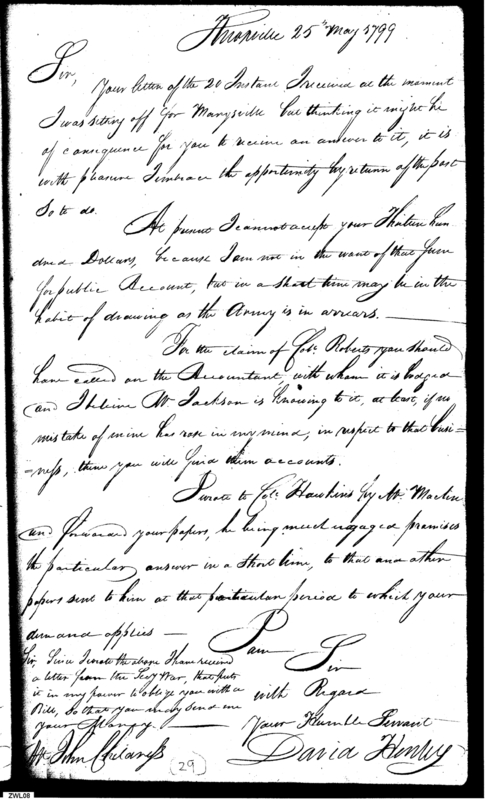 Knoxville 25th May 1799
Sir,
Your letter of the 20 Instant I received at the moment
I was setting off for Marysville but thinking it might be
of consequence for you to receive an answer to it, it is
with pleasure I embrace the opportunity by return of the post
so to do.
At present I cannot accept your Thirteen hun
dred Dollars, because I am not in the want of that sum
for public Account, but in a short time may be in the
habit of drawing as the Army is in arrears.
For the claim of Colo. Roberts you should
have called on the Accountant with whom it is lodged
and I believe Mr Jackson is knowing to it, at least, if no
mistake of mine has rose in my mind, in respect to that busi-
-ness, there you will find them accounts.
I wrote to Colo. Hawkins by Mr. Maclin
and forwarded your papers, he being much engaged promises
the particular answer in a short time, to that and other
papers sent to him at that particular period to which your
demand applies —
I am
Sir
with Regard
Your Humble Servant
David Henley
Sir, Since I wrote the above I have received
a letter from the Secy War, that puts
it in my power to oblige you with a
Bill, so that you may send me
your Money.
Mr John Childress
(29)
ZWL08